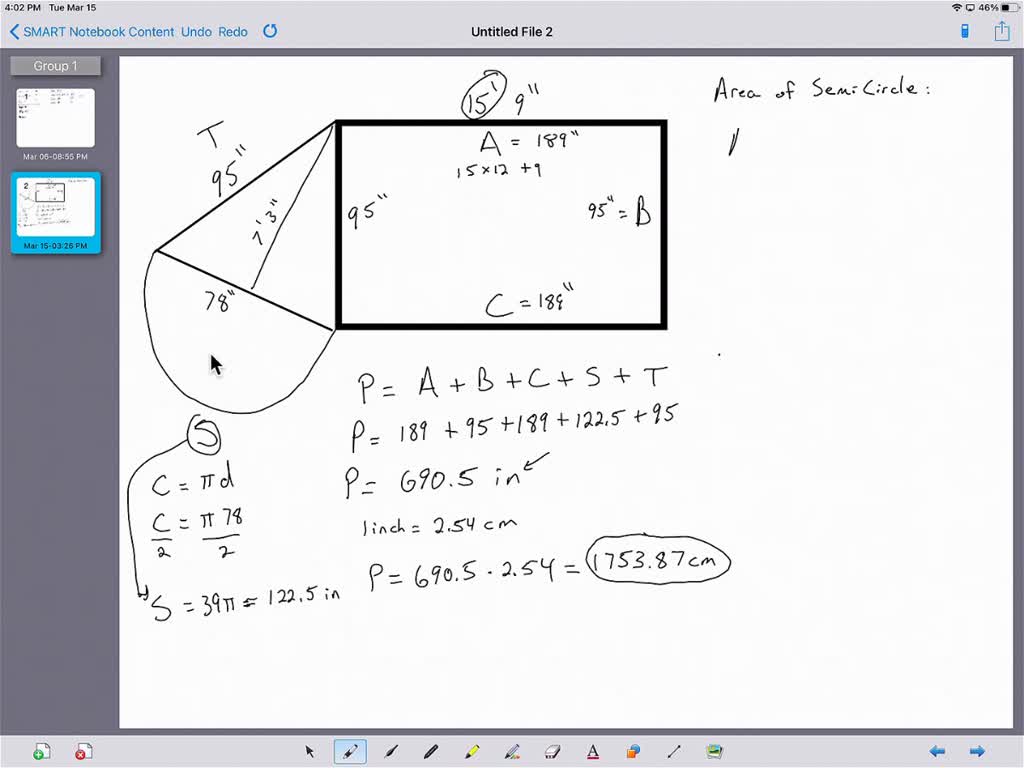 4:02 PM Tue Mar 15
46%
SMART Notebook Content Undo Redo
Untitled File 2
Group 1
Mar 06-08:55 PM
2
Mar 15-03:26 PM
15' 9"
Area of SemiCircle:
T
95"
A = 189"
15 × 12 + 9
7' 3"
95"
95" = B
78"
C = 189"
P = A + B + C + S + T
P = 189 + 95 + 189 + 122.5 + 95
P = 690.5 in
1 inch = 2.54 cm
P = 690.5 · 2.54 = 1753.87 cm
S
C = πd
C/2 = π78/2
S = 39π = 122.5 in